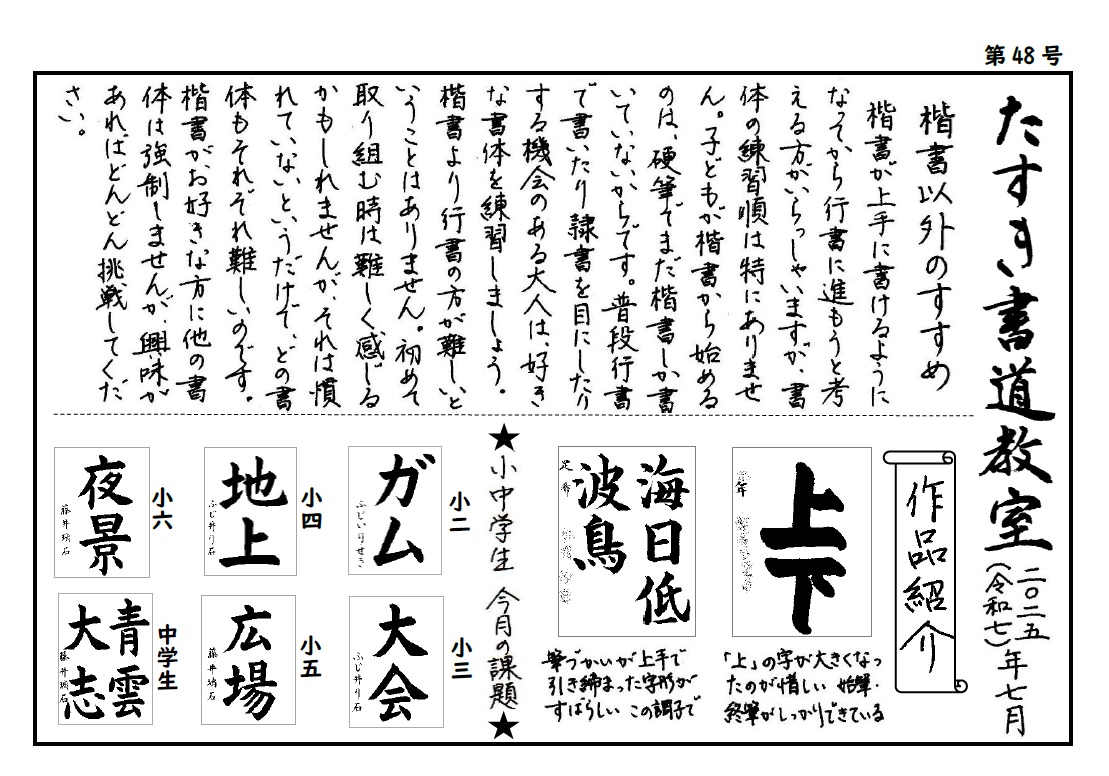 第48号
たすき書道教室
二〇二五(令和七)年七月
楷書以外のすすめ
楷書が上手に書けるように
なってから行書に進もうと考
える方がいらっしゃいますが、書
体の練習順は特にありませ
ん。子どもが楷書から始める
のは、硬筆でまだ楷書しか書
いていないからです。普段行書
で書いたり隷書を目にしたり
する機会のある大人は、好き
な書体を練習しましょう。
楷書より行書の方が難しいと
いうことはありません。初めて
取り組む時は難しく感じる
かもしれませんが、それは慣
れていないというだけで、どの書
体もそれぞれ難しいのです。
楷書がお好きな方に他の書
体は強制しませんが、興味が
あればどんどん挑戦してくだ
さい。
作品紹介
上下
「上」の字が大きくなっ
たのが惜しい 始筆・
終筆がしっかりできている
海日低
波鳥
筆づかいが上手で
引き締まった字形が
すばらしい この調子で
★小中学生 今月の課題★
小二
ガム
ふじいりせき
小三
大会
ふじ井り石
小四
地上
ふじ井り石
小五
広場
藤井璃石
小六
夜景
藤井璃石
中学生
青雲
大志
藤井璃石